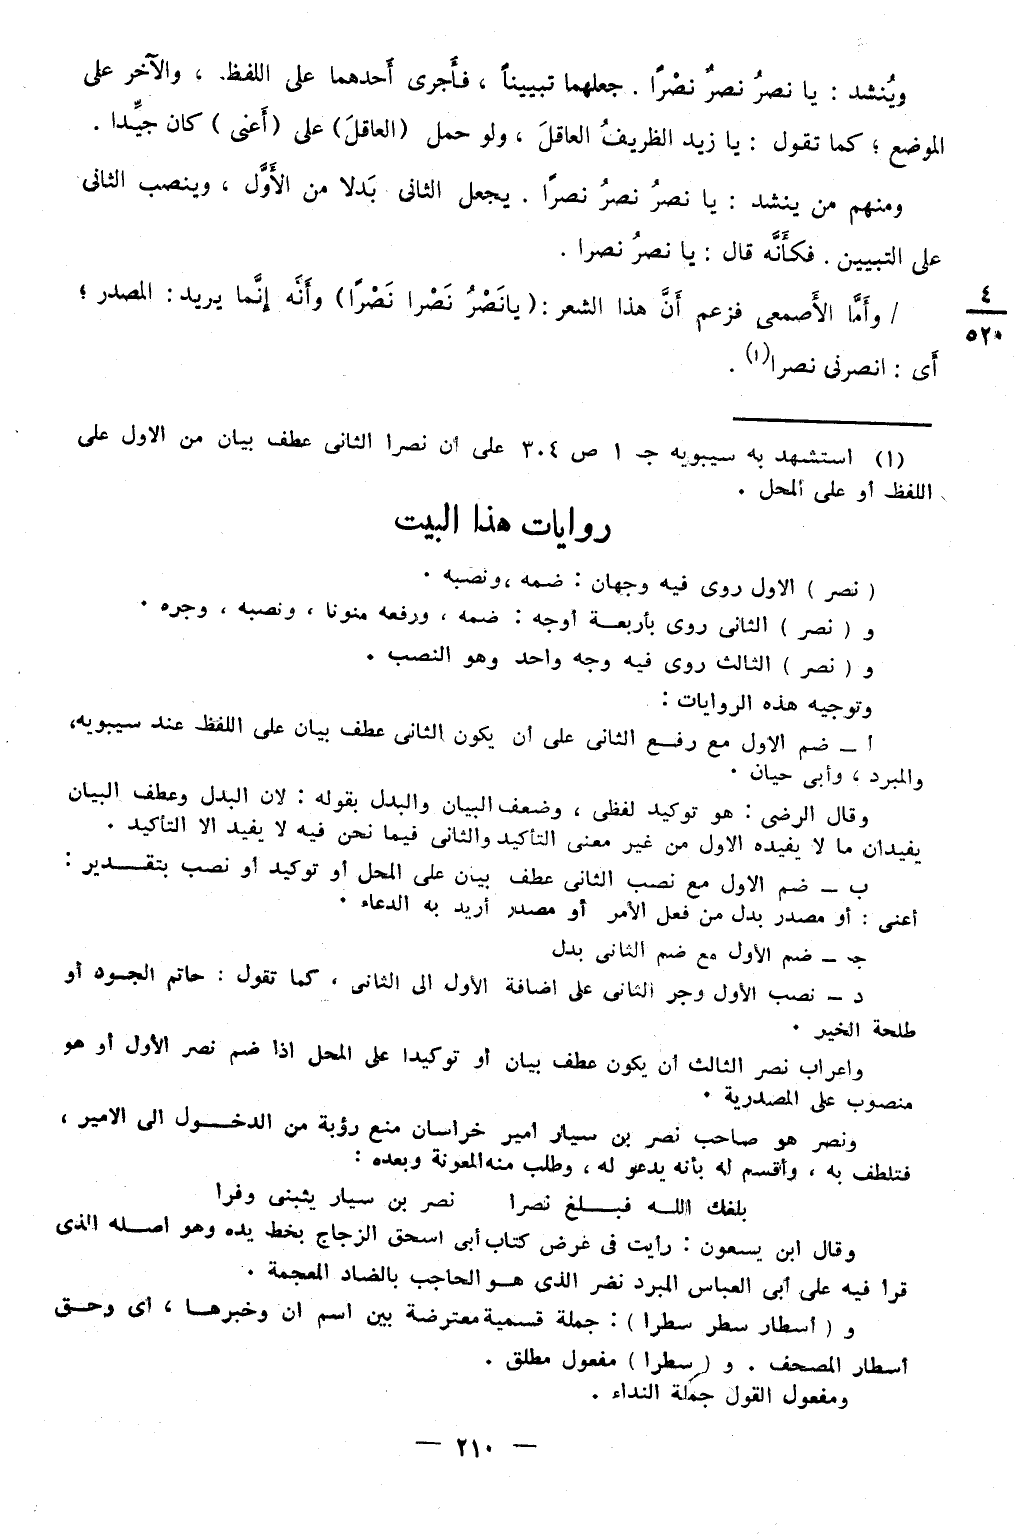 ويُنشد : يا نصرُ نصرٌ نصْرًا . جعلهما تبييناً ، فأَجرى أَحدهما على اللفظ ، والآخر على
الموضع ؛ كما تقول : يا زيد الظريفُ العاقلَ ، ولو حمل (العاقلَ) على (أَعنى) كان جيِّدا .
ومنهم من ينشد : يا نصرُ نصرُ نصرًا . يجعل الثانى بَدلا من الأَوَّل ، وينصب الثانى
على التبيين . فكأَنَّه قال : يا نصرُ نصرا .
/ وأَمَّا الأَصمعى فزعم أَنَّ هذا الشعر : (يانَصْرُ نَصْرا نَصْرًا) وأَنَّه إِنَّما يريد : المصدر ؛
٤
٥٢٠
أَى : انصرنى نصرا(١) .
(١) استشهد به سيبويه جـ ١ ص ٣٠٤ على أن نصرا الثانى عطف بيان من الاول على
اللفظ أو على المحل .
روايات هذا البيت
( نصر ) الاول روى فيه وجهان : ضمه ، ونصبه .
و ( نصر ) الثانى روى بأربعـة أوجه : ضمه ، ورفعه منونا ، ونصبه ، وجره .
و ( نصر ) الثالث روى فيه وجه واحد وهو النصب .
وتوجيه هذه الروايات :
أ ــ ضم الاول مع رفـع الثانى على أن يكون الثانى عطف بيان على اللفظ عند سيبويه،
والمبرد ، وأبى حيان .
وقال الرضى : هو توكيد لفظى ، وضعف البيان والبدل بقوله : لان البدل وعطف البيان
يفيدان ما لا يفيده الاول من غير معنى التأكيد والثانى فيما نحن فيه لا يفيد الا التأكيد .
ب ــ ضم الاول مع نصب الثانى عطف بيان على المحل أو توكيد أو نصب بتقـــدير :
أعنى : أو مصدر بدل من فعل الأمر أو مصدر أريد به الدعاء .
جـ ــ ضم الأول مع ضم الثانى بدل
د ــ نصب الأول وجر الثانى على اضافة الأول الى الثانى ، كما تقول : حاتم الجـود أو
طلحة الخير .
واعراب نصر الثالث أن يكون عطف بيان أو توكيدا على المحل اذا ضم نصر الأول أو هو
منصوب على المصدرية .
ونصر هو صاحب نصر بن سيار أمير خراسان منع رؤبة من الدخـــول الى الامير ،
فتلطف به ، وأقسم له بأنه يدعو له ، وطلب منه المعونة وبعده :
بلغك اللـــه فبـــلغ نصرا نصر بن سيار يثبنى وفرا
وقال ابن يسعون : رأيت فى عرض كتاب أبى اسحق الزجاج بخط يده وهو أصـــله الذى
قرأ فيه على أبى العباس المبرد نضر الذى هـو الحاجب بالضاد المعجمة .
و ( أسطار سطر سطرا ) : جملة قسمية معترضة بين اسم ان وخبرهـا ، أى وحـق
أسطار المصحف . و ( سطرا ) مفعول مطلق .
ومفعول القول جملة النداء .
ــ ٢١٠ ــ